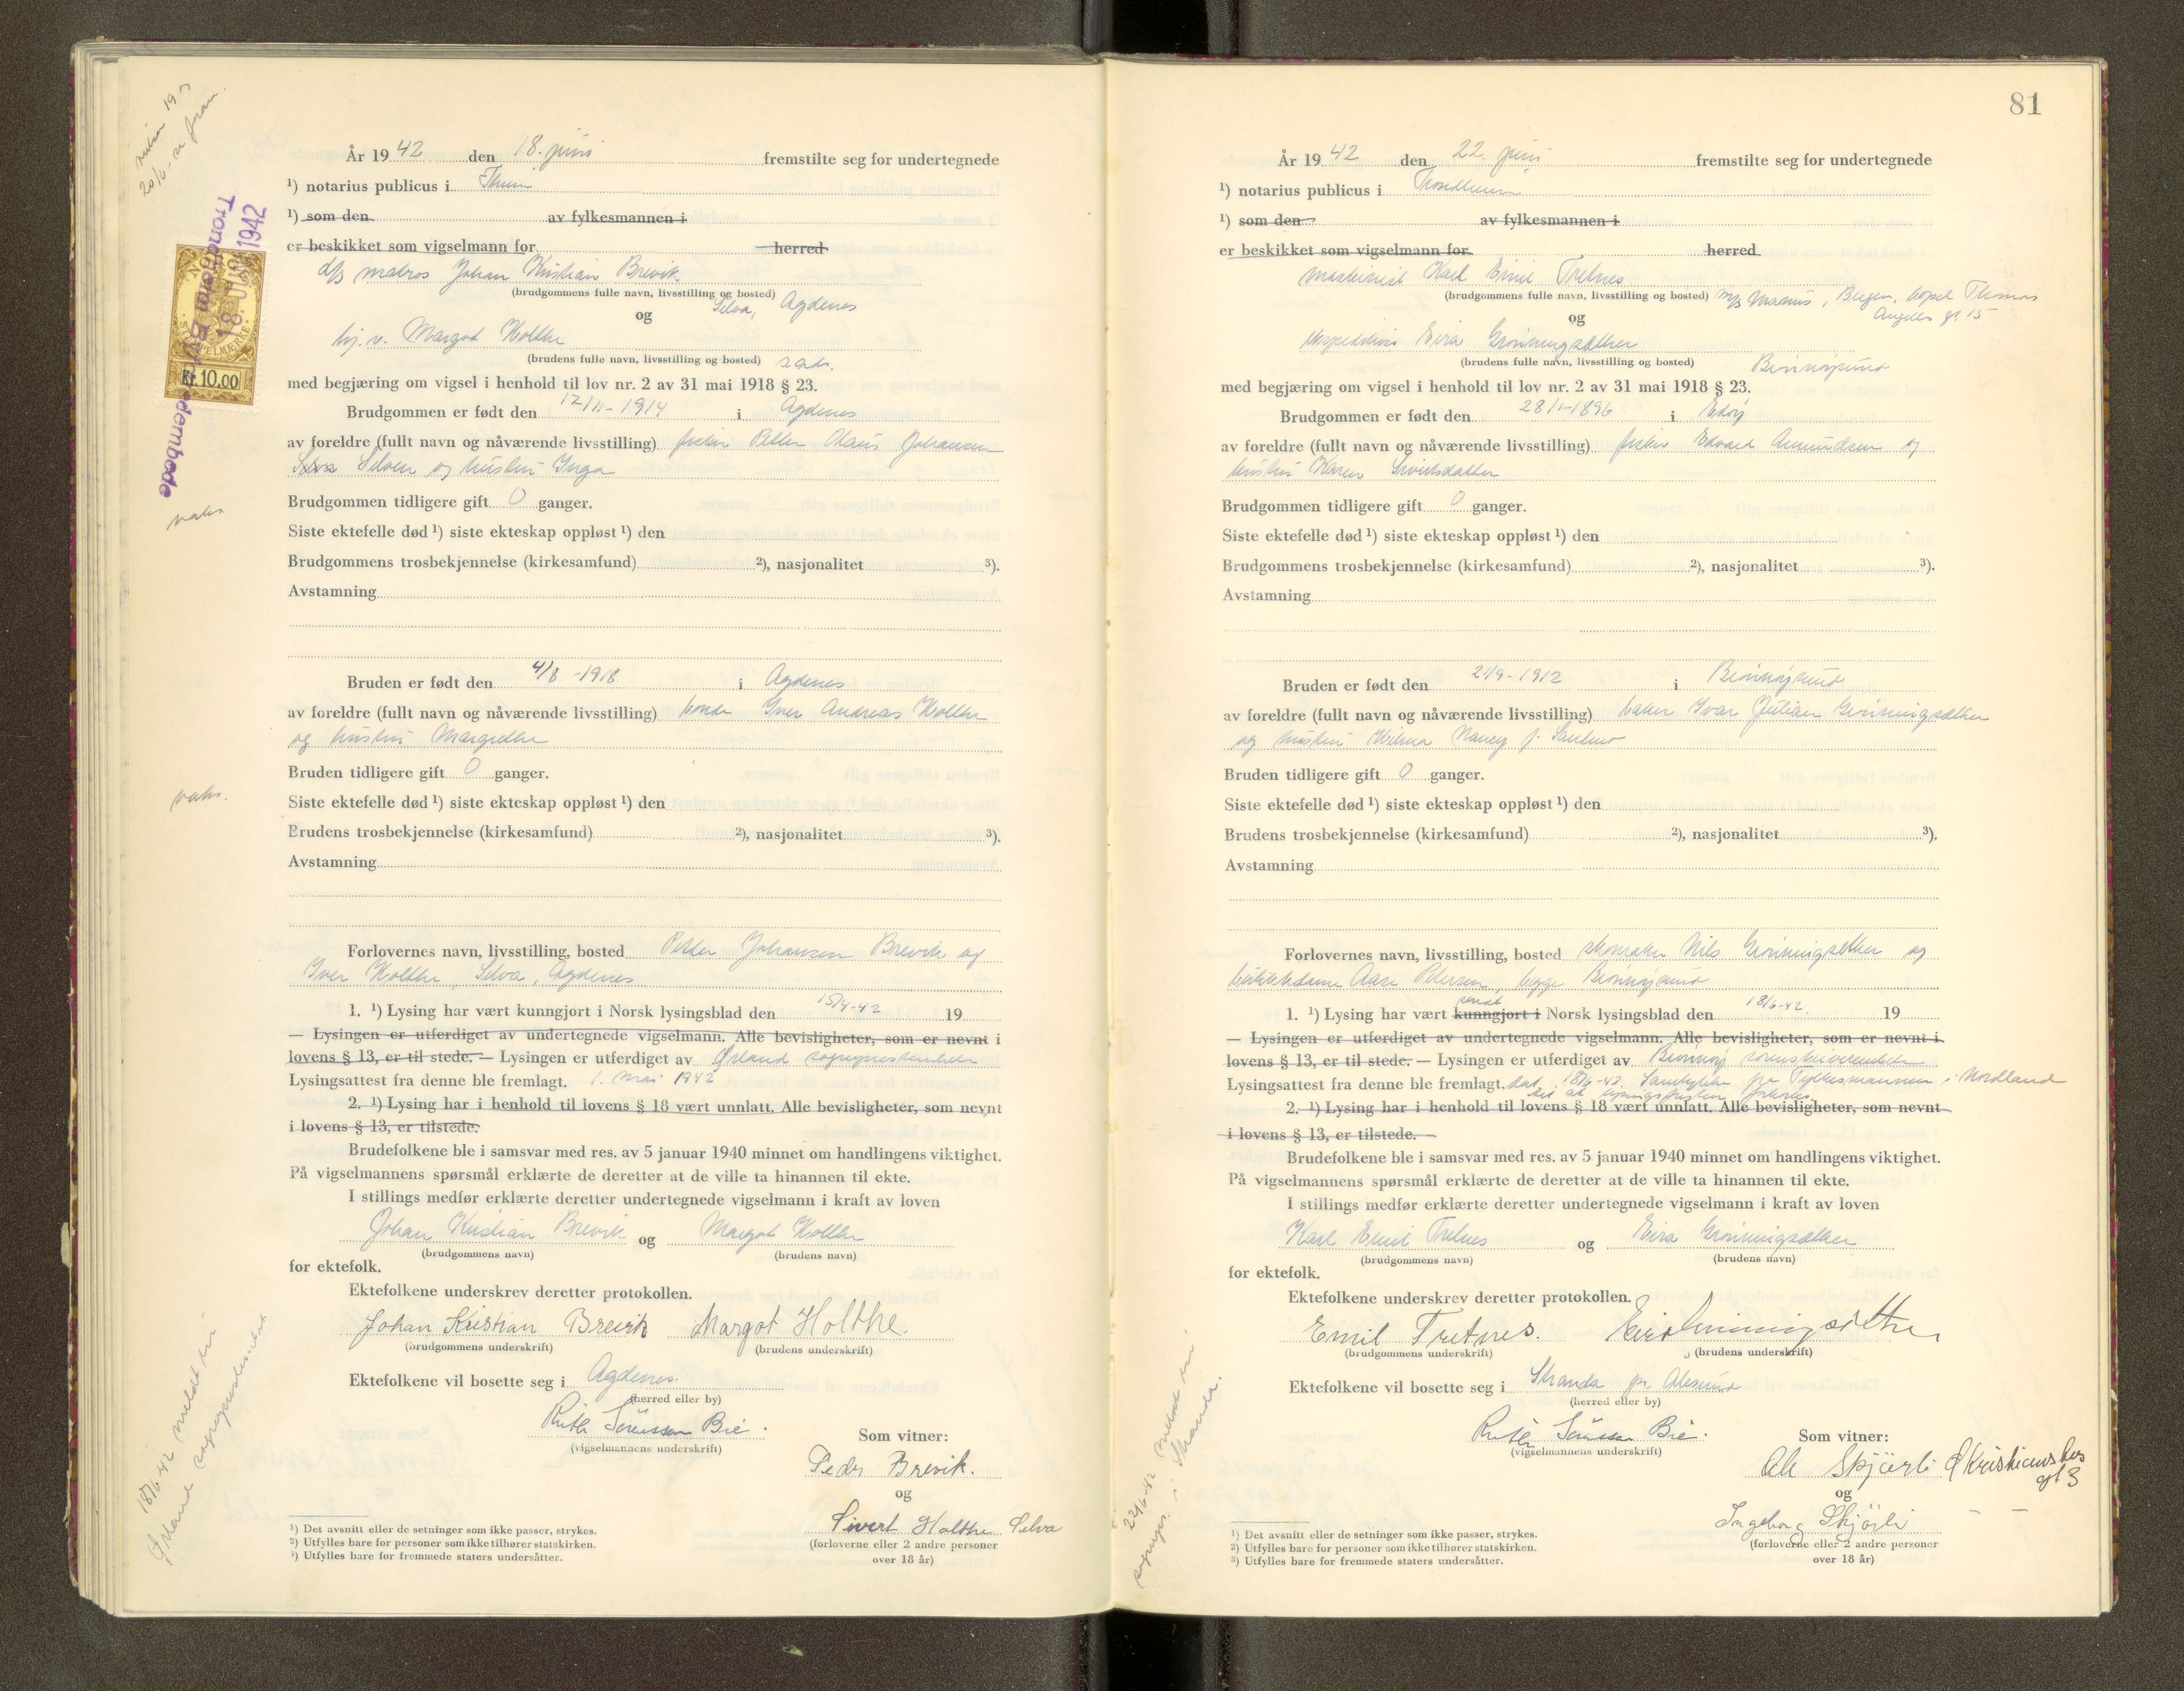 År 1942 den 18. juni fremstilte seg for undertegnede
¹) notarius publicus i Thjem
¹) som den av fylkesmannen i
er beskikket som vigselmann for herred
d/s matros Johan Kristian Brevik
(brudgommens fulle navn, livsstilling og bosted) Selva, Agdenes
og
hj. v. Margot Holthe
(brudens fulle navn, livsstilling og bosted) sads.
med begjæring om vigsel i henhold til lov nr. 2 av 31 mai 1918 § 23.
Brudgommen er født den 12/11-1914 i Agdenes
av foreldre (fullt navn og nåværende livsstilling) fisker Petter Olaus Johansen
Selven og hustru Inga
Brudgommen tidligere gift 0 ganger.
Siste ektefelle død ¹) siste ekteskap oppløst ¹) den
Brudgommens trosbekjennelse (kirkesamfund) ²), nasjonalitet ³).
Avstamning
Bruden er født den 4/8-1918 i Agdenes
av foreldre (fullt navn og nåværende livsstilling) bonde Iver Andreas Holthe
og hustru Margrethe
Bruden tidligere gift 0 ganger.
Siste ektefelle død ¹) siste ekteskap oppløst ¹) den
Brudens trosbekjennelse (kirkesamfund) ²), nasjonalitet ³).
Avstamning
Forlovernes navn, livsstilling, bosted Petter Johansen Brevik og
Iver Holthe, Selva, Agdenes
1. ¹) Lysing har vært kunngjort i Norsk lysingsblad den 15/4-42 19
— Lysingen er utferdiget av undertegnede vigselmann. Alle bevisligheter, som er nevnt i
lovens § 13, er til stede. — Lysingen er utferdiget av Ørland sogneprestembete
Lysingsattest fra denne ble fremlagt. 1. mai 1942
2. ¹) Lysing har i henhold til lovens § 18 vært unnlatt. Alle bevisligheter, som nevnt
i lovens § 13, er tilstede.
Brudefolkene ble i samsvar med res. av 5 januar 1940 minnet om handlingens viktighet.
På vigselmannens spørsmål erklærte de deretter at de ville ta hinannen til ekte.
I stillings medfør erklærte deretter undertegnede vigselmann i kraft av loven
Johan Kristian Brevik og Margot Holthe
(brudgommens navn) (brudens navn)
for ektefolk.
Ektefolkene underskrev deretter protokollen.
Johan Kristian Brevik Margot Holthe.
(brudgommens underskrift) (brudens underskrift)
Ektefolkene vil bosette seg i Agdenes.
(herred eller by)
Ruth Sørenssen Bie.
(vigselmannens underskrift)
Som vitner:
Peder Brevik.
og
Sivert Holthe Selva
(forloverne eller 2 andre personer
over 18 år)
¹) Det avsnitt eller de setninger som ikke passer, strykes.
²) Utfylles bare for personer som ikke tilhører statskirken.
³) Utfylles bare for fremmede staters undersåtter.
STEMPELMERKE
Kr. 10.00
Trondheim Byfogdembede
18. JUNI 1942
vaks.
vaks.
18/6-42 meldt til
Ørland sogneprestembete
81
År 1942 den 22. juni fremstilte seg for undertegnede
¹) notarius publicus i Trondheim
¹) som den av fylkesmannen i
er beskikket som vigselmann for herred
maskinist Karl Emil Tretnes
(brudgommens fulle navn, livsstilling og bosted) m/s Maanes, Bergen, bopel Thomas
Angells gt. 15
og
ekspeditrise Eira Grønningsæther
(brudens fulle navn, livsstilling og bosted) Brønnøysund
med begjæring om vigsel i henhold til lov nr. 2 av 31 mai 1918 § 23.
Brudgommen er født den 28/1-1896 i Edøy
av foreldre (fullt navn og nåværende livsstilling) fisker Edvard Amundsen og
hustru Karen Sivertsdatter
Brudgommen tidligere gift 0 ganger.
Siste ektefelle død ¹) siste ekteskap oppløst ¹) den
Brudgommens trosbekjennelse (kirkesamfund) ²), nasjonalitet ³).
Avstamning
Bruden er født den 21/9-1912 i Brønnøysund
av foreldre (fullt navn og nåværende livsstilling) baker Ivar Julian Grønningsæther
og hustru Wilma Nancy f.
Bruden tidligere gift 0 ganger.
Siste ektefelle død ¹) siste ekteskap oppløst ¹) den
Brudens trosbekjennelse (kirkesamfund) ²), nasjonalitet ³).
Avstamning
Forlovernes navn, livsstilling, bosted skomaker Nils Grønningsæther og
butikkdame Aase Petersen, begge Brønnøysund
sendt
1. ¹) Lysing har vært kunngjort i Norsk lysingsblad den 18/6-42. 19
— Lysingen er utferdiget av undertegnede vigselmann. Alle bevisligheter, som er nevnt i
lovens § 13, er til stede. — Lysingen er utferdiget av Brønnøy sorenskriverembete
Lysingsattest fra denne ble fremlagt. dat. 18/6-42. Samtykke fra Fylkesmannen i Nordland
til at lysingsfristen
2. ¹) Lysing har i henhold til lovens § 18 vært unnlatt. Alle bevisligheter, som nevnt
i lovens § 13, er tilstede.
Brudefolkene ble i samsvar med res. av 5 januar 1940 minnet om handlingens viktighet.
På vigselmannens spørsmål erklærte de deretter at de ville ta hinannen til ekte.
I stillings medfør erklærte deretter undertegnede vigselmann i kraft av loven
Karl Emil Tretnes og Eira Grønningsæther
(brudgommens navn) (brudens navn)
for ektefolk.
Ektefolkene underskrev deretter protokollen.
Emil Tretnes. Eira Grønningsæther
(brudgommens underskrift) (brudens underskrift)
Ektefolkene vil bosette seg i Stranda pr. Ålesund
(herred eller by)
Ruth Sørenssen Bie.
(vigselmannens underskrift)
Som vitner:
Ole Skjørli Ø Kristiansthes
gt 3
og
Ingeborg Skjørli — —
(forloverne eller 2 andre personer
over 18 år)
¹) Det avsnitt eller de setninger som ikke passer, strykes.
²) Utfylles bare for personer som ikke tilhører statskirken.
³) Utfylles bare for fremmede staters undersåtter.
22/6-42 meldt til
sognepr. i Stranda.